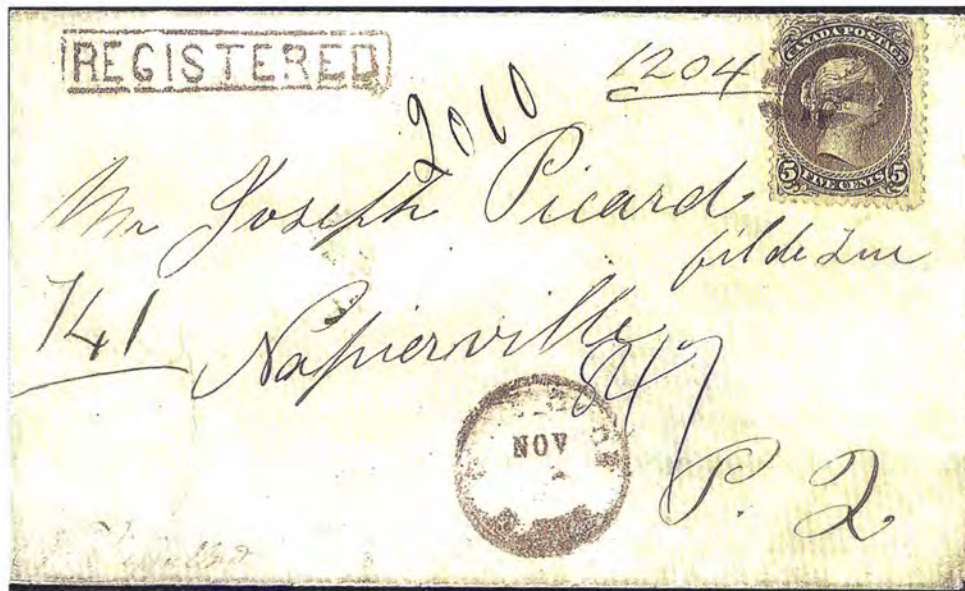 REGISTERED
1204
CANADA POSTAGE
5 FIVE CENTS 5
2010
Mr Joseph Picard
fil de Luc
741
Napierville
847
NOV
P. Q